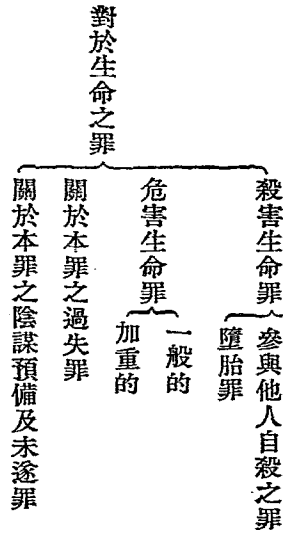 對於生命之罪
殺害生命罪
參與他人自殺之罪
墮胎罪
危害生命罪
一般的
加重的
關於本罪之過失罪
關於本罪之陰謀預備及未遂罪